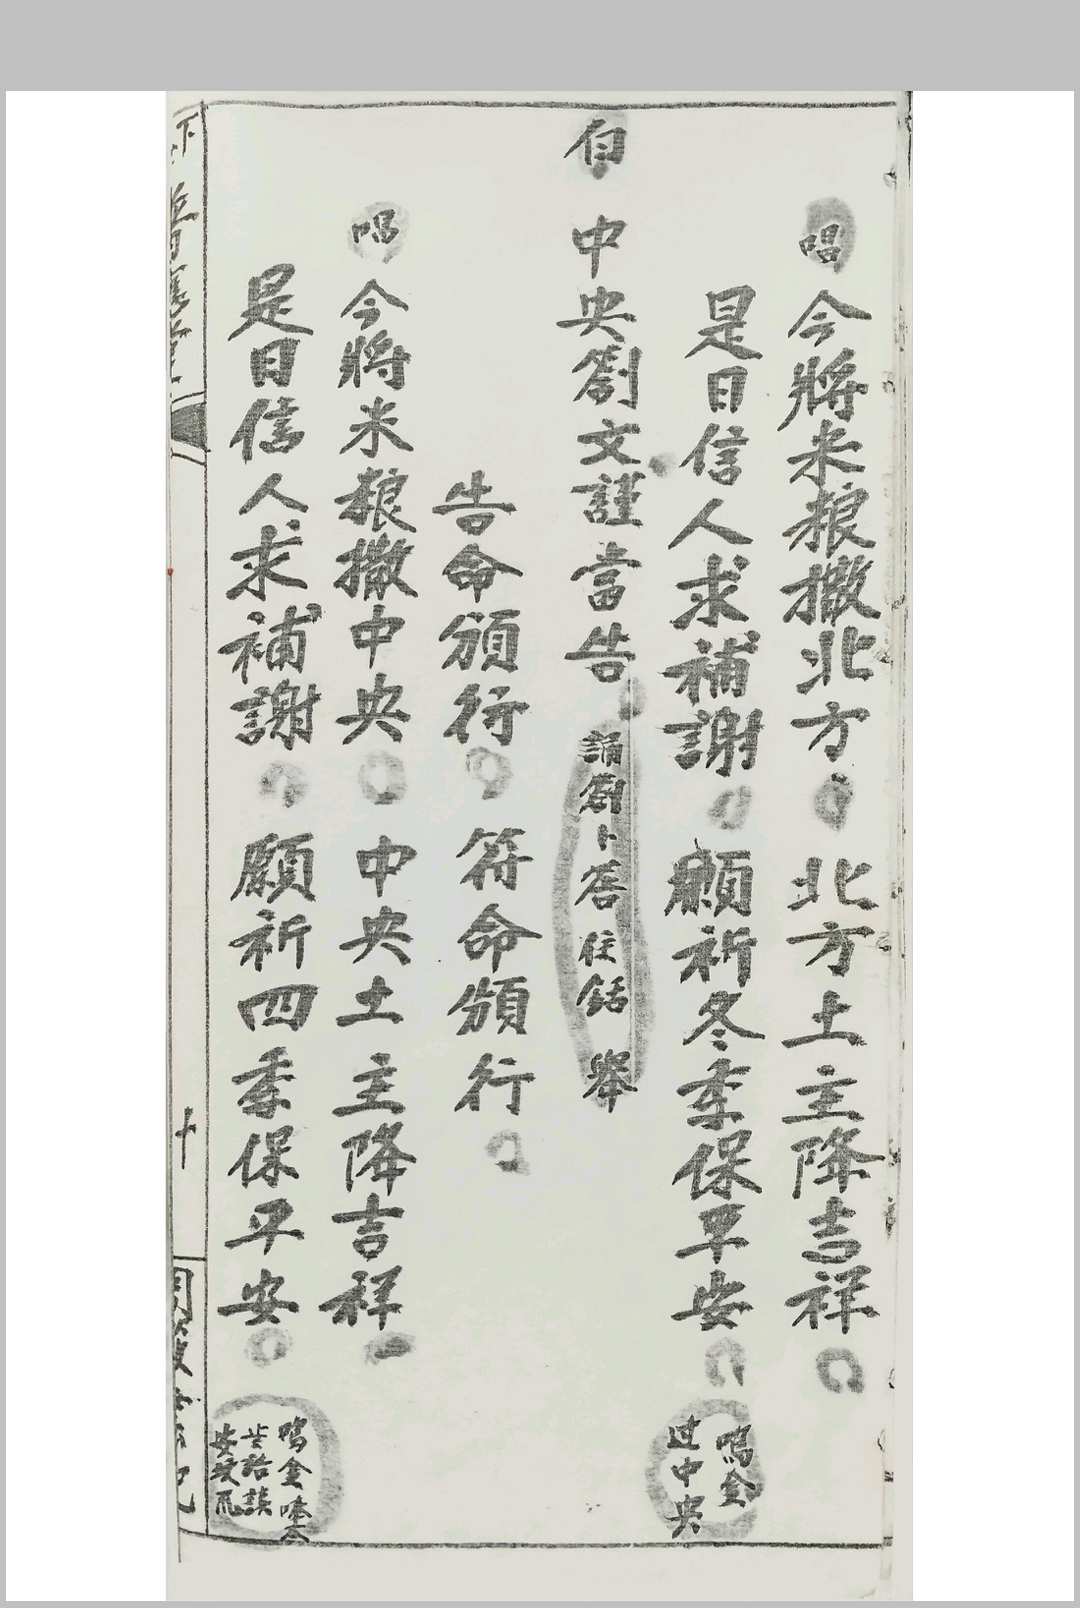 唱 今將米粮撒北方 北方土主降吉祥
是日信人求補謝 願祈冬季保平安
鳴金
过中央
白 中央劄文謹當告 誦劄卜筶 住鈸 舉
告命頒行 符命頒行
唱 今將米粮撒中央 中央土主降吉祥
是日信人求補謝 願祈四季保平安
鳴金
十